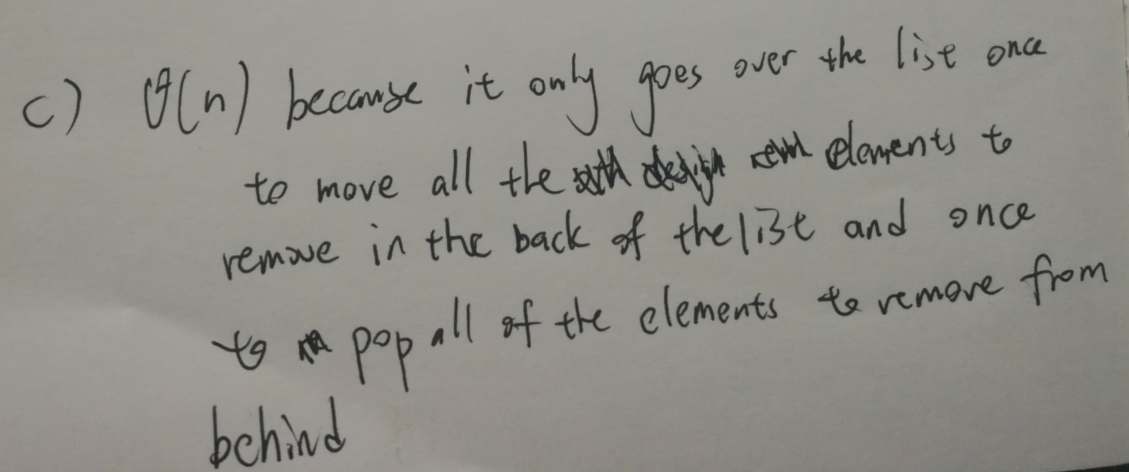 c) θ(n) because it only goes over the list once
to move all the elements to
remove in the back of the list and once
to pop all of the elements to remove from
behind